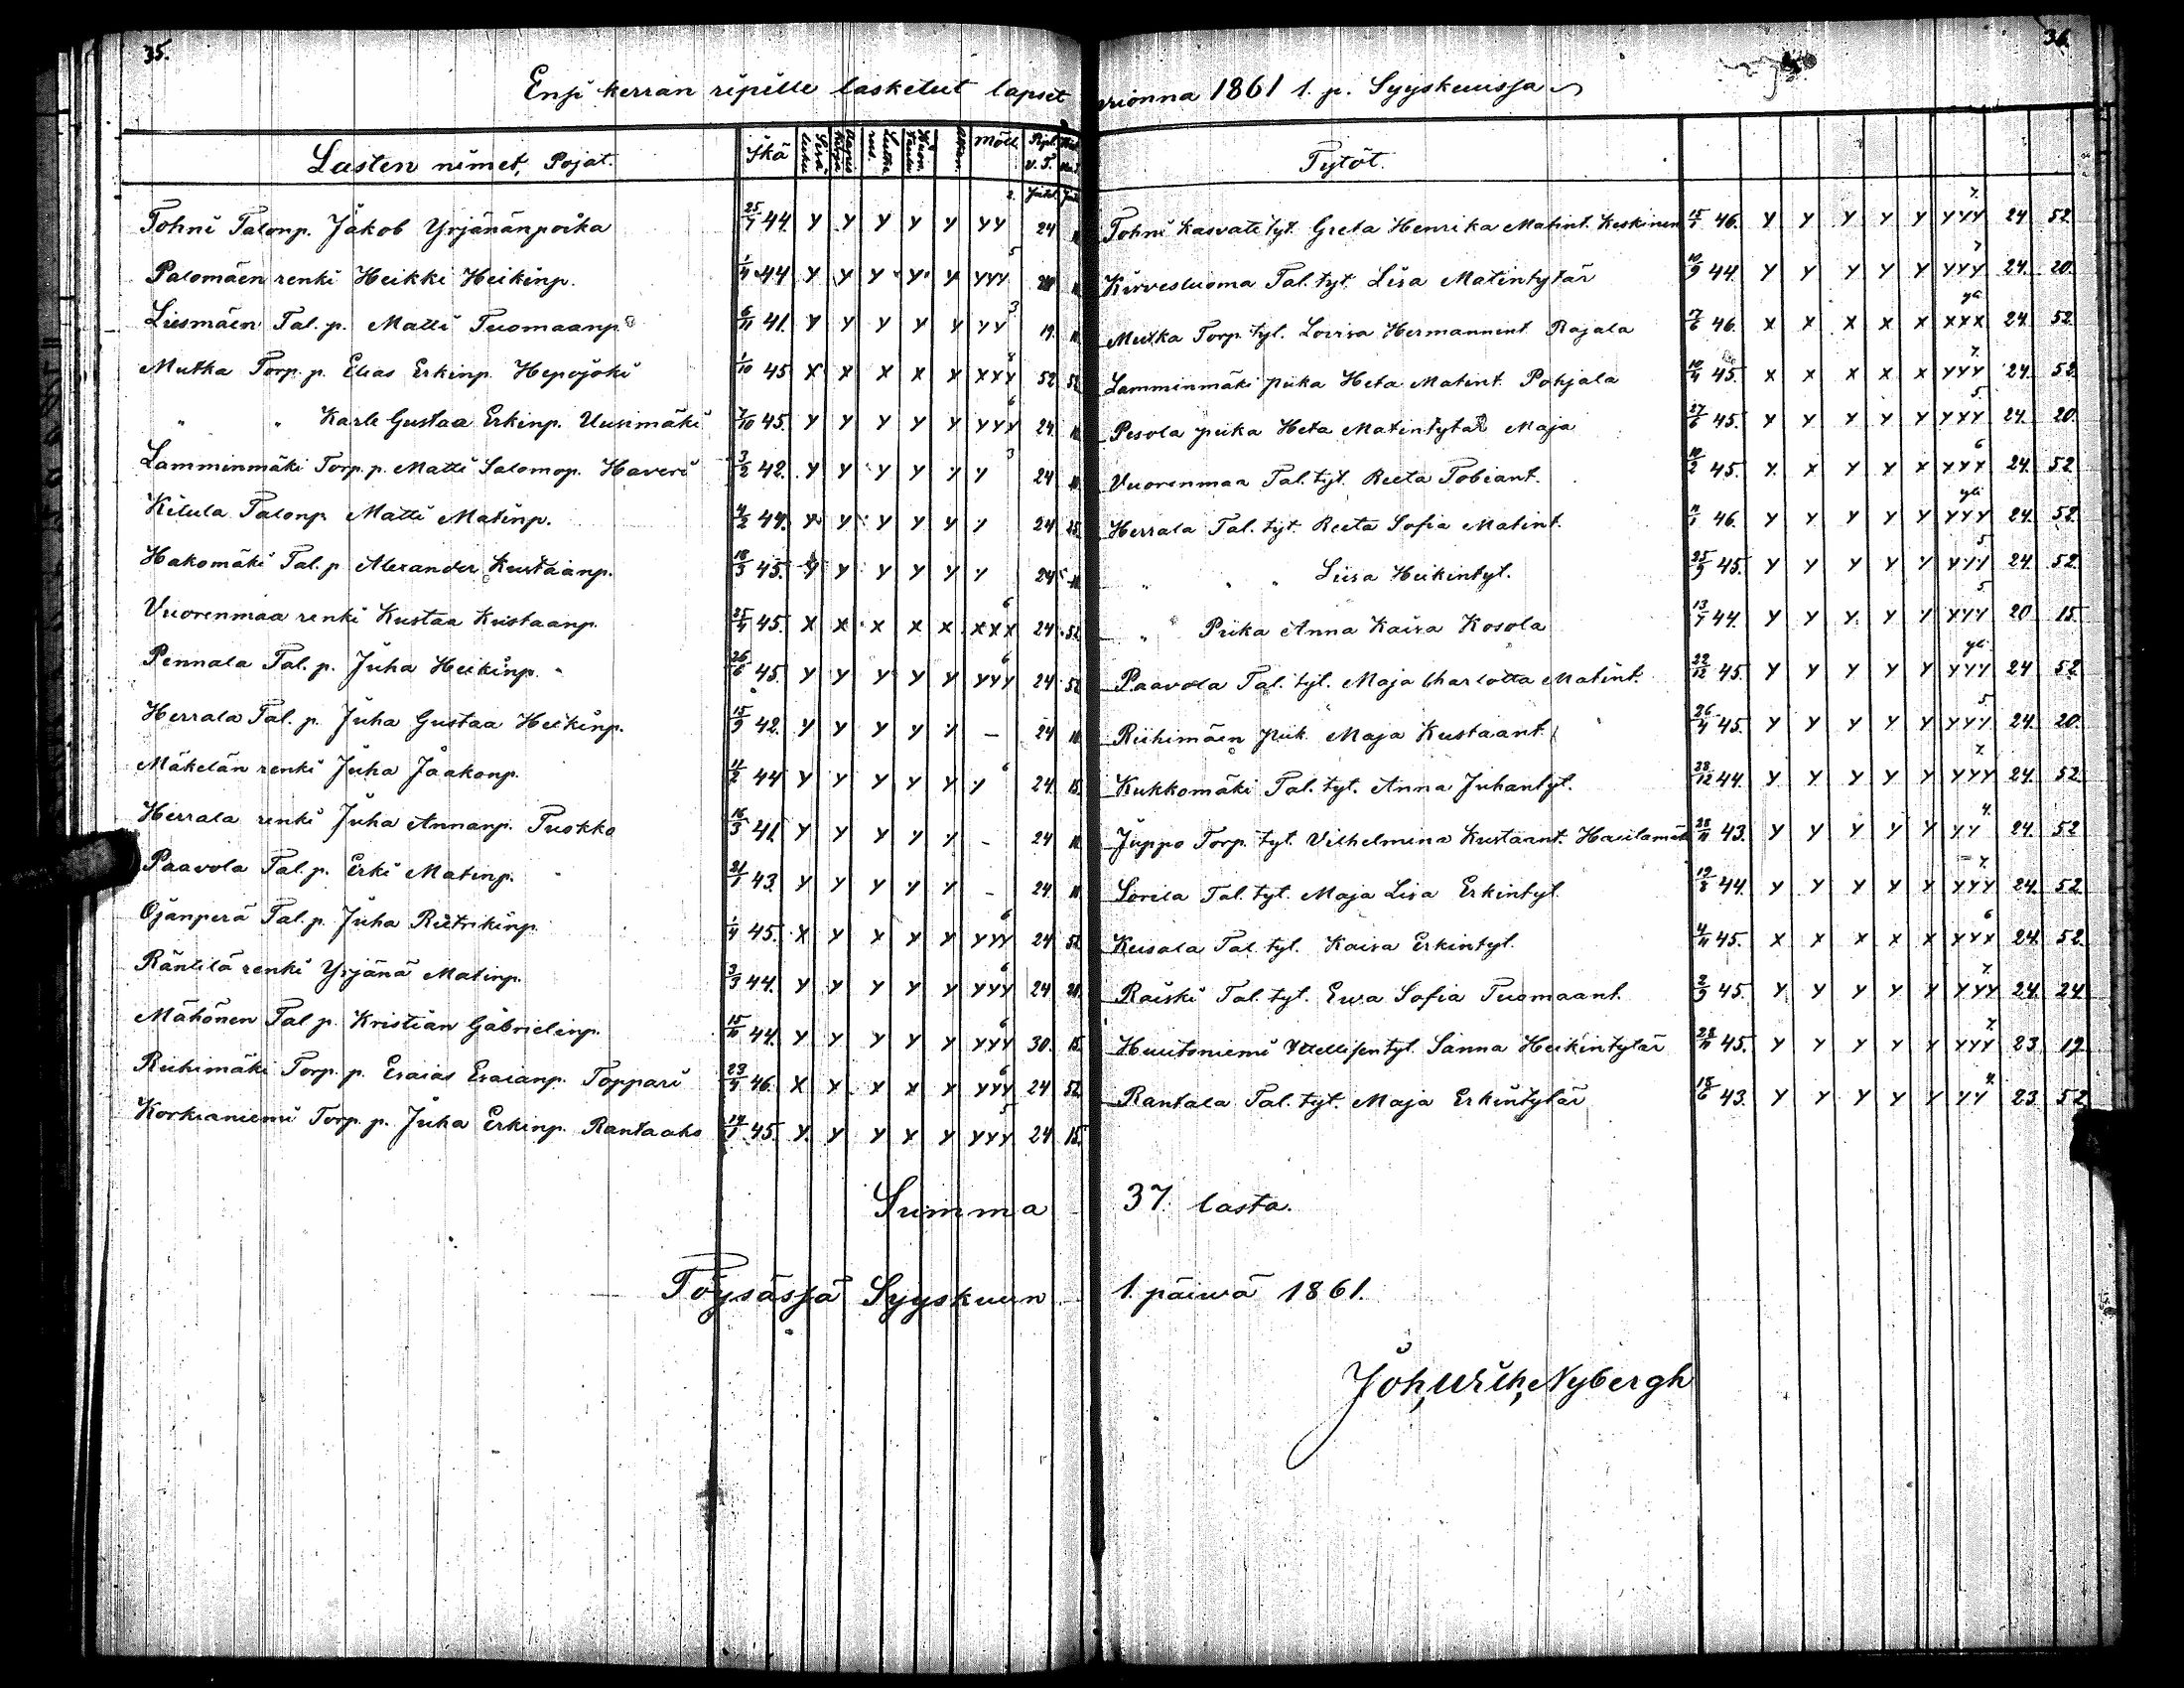 35.
Ensi kerran ripille lasketut lapset
Lasten nimet, Pojat. Ikä Möll.
Tohni Talonp. Jakob Yrjänänpoika 25/7 44. y y y y y yy 2. 24
Palomäen renki Heikki Heikinp. 1/4 44 y y y y y yyy 5
Liesmäen Tal. p. Matti Tuomaanp. 6/11 41. y y y y y yy 3 19.
Mutka Torp. p. Elias Erkinp. Hepojoki 1/10 45 x x x x x xxx 52 52
" " Karle Gustaa Erkinp. Uusimäki 7/10 45. y y y y y yyy 6 24
Lamminmäki Torp. p. Matti Salomop. Haveri 3/2 42. y y y y y y 3 24
Kitula Talonp. Matti Matinp. 4/2 44. y y y y y y 24 25.
Hakomäki Tal. p. Alexander Kustaanp. 18/3 45. y y y y y y 24
Vuorenmaa renki Kustaa Kustaanp. 25/4 45. x x x x x xxx 6 24 52
Pennala Tal. p. Juha Heikinp. 26/6 45. y y y y y yyy 6 24 52
Herrala Tal. p. Juha Gustaa Heikinp. 15/9 42. y y y y y – 24
Mäkelän renki Juha Jaakonp. 11/2 44 y y y y y y 6 24. 15.
Herrala renki Juha Annanp. Tuokko 16/3 41. y y y y y – 24
Paavola Tal. p. Erki Matinp. 21/1 43. y y y y y – 24.
Ojanperä Tal. p. Juha Rietrikinp. 1/4 45. x y y y y yyy 6 24 52
Räntilä renki Yrjänä Matinp. 3/3 44. y y y y y yyy 6 24
Mähönen Tal. p. Kristian Gabrielinp. 15/10 44. y y y y y yyy 6 30. 15.
Riihimäki Torp. p. Esaias Esaianp. Toppari 23/4 46. x x x x x yyy 6 24 52
Korkianiemi Torp. p. Juha Erkinp. Rantaaho 14/1 45. y y y y y yyy 5 24 15.
Summa
Töysässä Syyskuun
36.
vuonna 1861 1. p. Syyskuussa
Tytöt.
Tohni Kasvate tyt. Greta Henrika Matint. Keskinen 15/1 46. y y y y y yyy 7. 24 52.
Kirvesluoma Tal. tyt. Lisa Matintytär 10/9 44. y y y y y yyy 7 24. 20.
Mutka Torp. tyt. Lovisa Hermannint. Rajala 17/6 46. x x x x x xxx 24. 52.
Lamminmäki piika Heta Matint. Pohjala 10/4 45. x x x x x yyy 7. 24. 52.
Pesola piika Heta Matintytär Maja 27/6 45. y y y y y yyy 5. 24. 20.
Vuorenmaa Tal. tyt. Reeta Tobiant. 10/2 45. y x y y x yyy 6 24. 52.
Herrala Tal. tyt. Reeta Sofia Matint. 11/1 46. y y y y y yyy yli 24. 52.
" " " Liisa Heikintyt. 25/9 45. y y y y y yyy 5 24. 52.
" Piika Anna Kaisa Kosola 13/7 44. y y y y y yyy 5. 20 15.
Paavola Tal. tyt. Maja Charlotta Matint. 22/12 45. y y y y y yyy 24 52
Riihimäen piik. Maja Kustaant. 26/4 45. y y y y y yyy 5 24. 20.
Kukkomäki Tal. tyt. Anna Juhantyt. 28/12 44. y y y y y yyy 7. 24. 52.
Juppo Torp. tyt. Vilhelmina Kustaant. 28/11 43. y y y y y yy 4. 24. 52
Sorila Tal. tyt. Maja Lisa Erkintyt. 19/8 44. y y y y y yyy 7. 24. 52.
Keisala Tal. tyt. Kaisa Erkintyt. 4/11 45. x x x x x xxx 6 24. 52.
Raiski Tal. tyt. Ewa Sofia Tuomaant. 2/9 45. y y y y y yyy 7. 24. 24
Huutoniemi Itellisentyt. Sanna Heikintytär 28/11 45. y y y y y yyy 7. 23. 19.
Rantala Tal. tyt. Maja Erkintytär 15/6 43. y y y y y yy 4. 23. 52
37. lasta.
1. päiwä 1861.
Joh, Ulrik, Nybergh